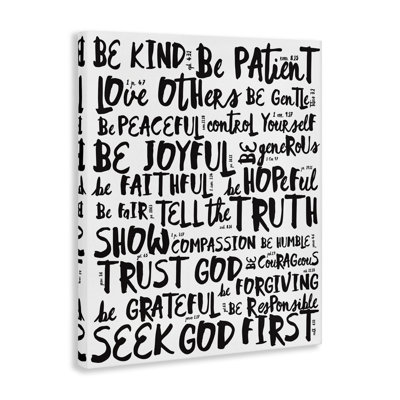 BE KIND Be Patient
Love OTHers BE GenTle
Be PEACEFUL conTROL YourSelf
BE JOYFUL BE geneROUS
be FAITHFUL be HOPEful
Be FaiR TELL the TRUTH
SHOW COMPASSION BE HUMBLE
TRUST GOD BE CouRAGeous
be GRATEFUL be FORGIVING
BE ResPonsible
SEEK GOD FIRST